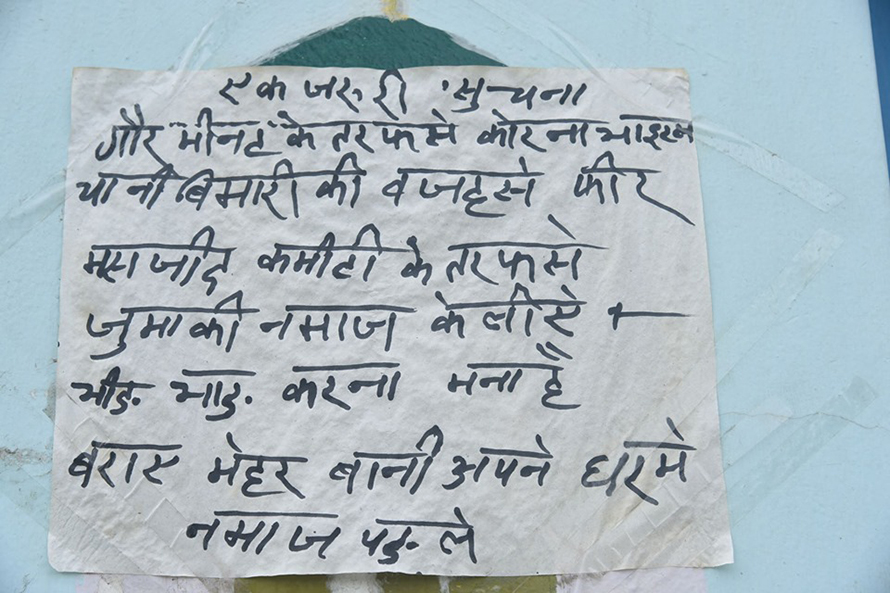 एक जरुरी सुचना
गौर मीनट के तरफसे कोरना भाइरस
यानी बिमारी की वजहसे फीर
मसजीद कमीटी के तरफसे
जुमाकी नमाज के लीऐ
भीड़ भाड़ करना मना है
बराए मेहर बानी अपने घरमे
नमाज पड़ ले